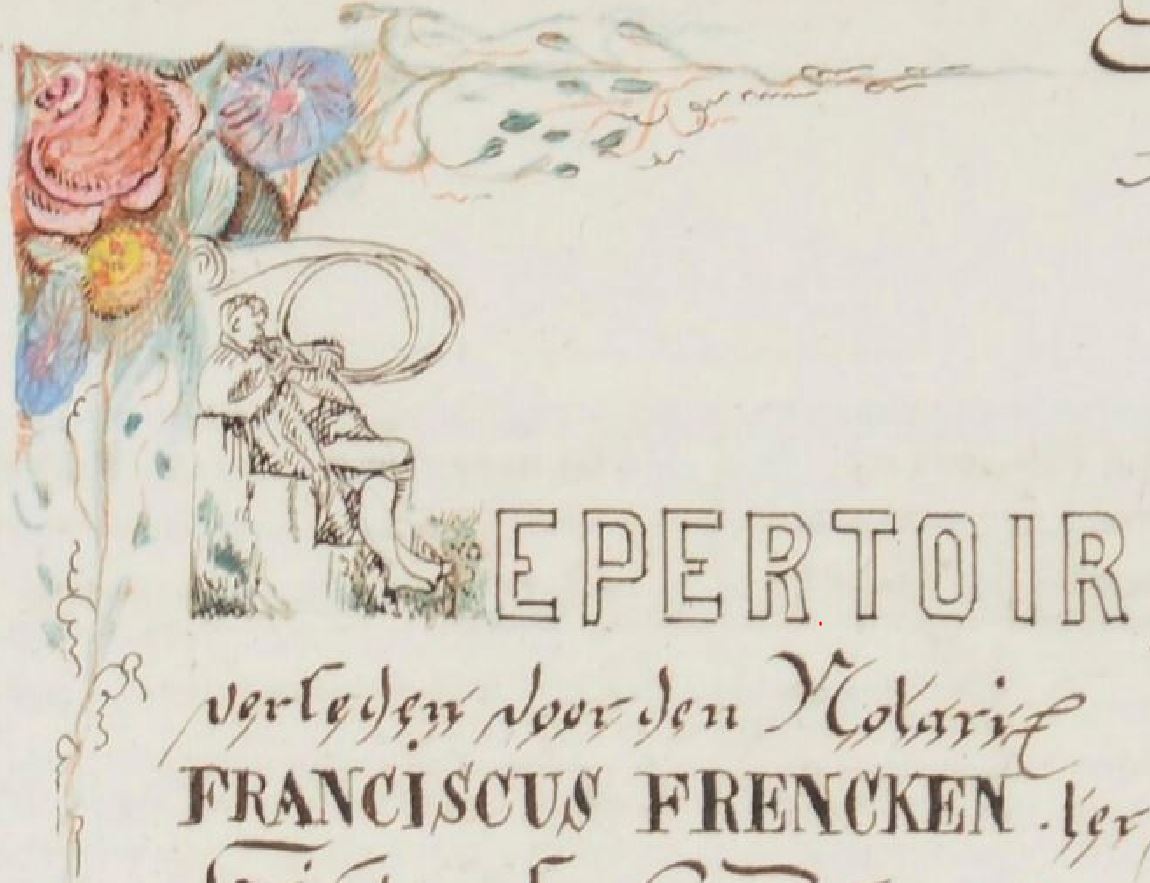 REPERTOIR
verleden voor den Notaris
FRANCISCUS FRENCKEN. ter